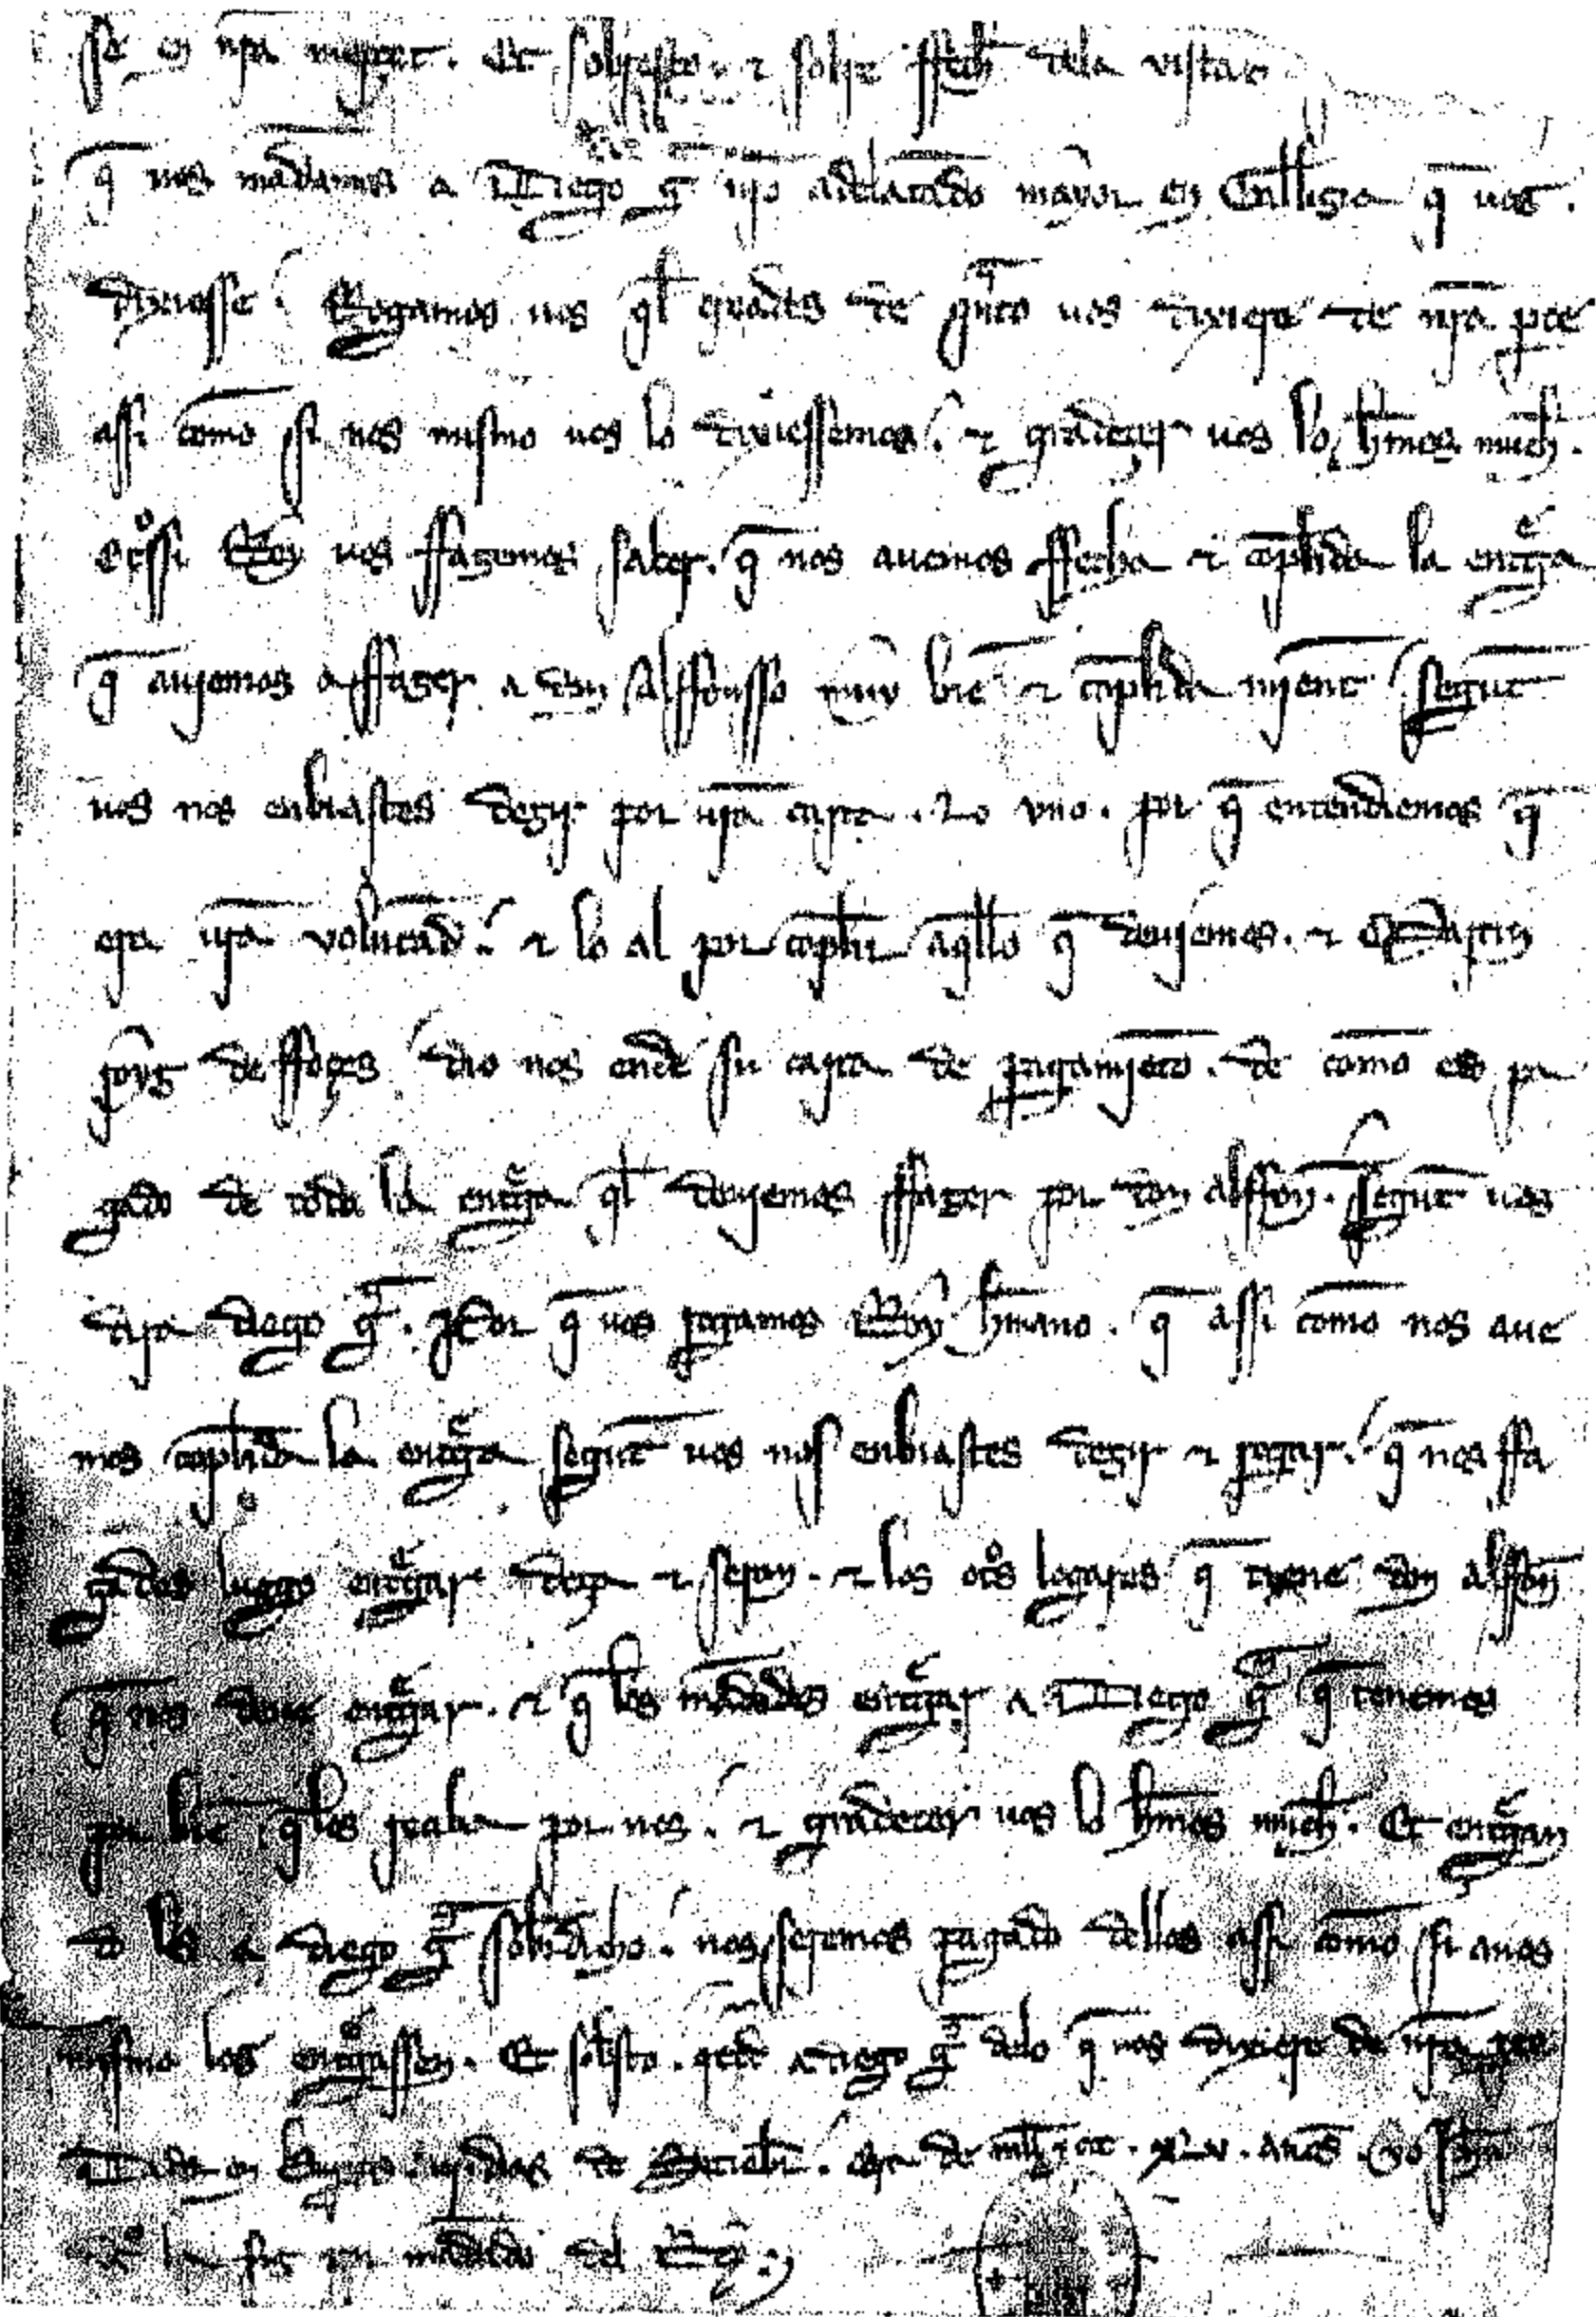 se en nra merçet. Et sobresto. ⁊ sobre ffech dela vistas
q̄ nos mādamos a Diego gª nro adelātado mayor en Castiella q̄ uos.
dixiesse. Rogamos uos ql creades de qnto uos dixiere de nra pte
assi como si nos mismo uos lo dixiessemos. ⁊ gradeçer uos lo hemos much.
Otºssi Rey uos ffazemos saber. q̄ nos auemos ffecha ⁊ cōplida la entga
q̄ auiemos a ffazer a don Alffonsso muy bie ⁊ cōplida mient segūt
uos nos enbiastes dezir por ura carta. Lo vno. por q̄ entendiemos q̄
era ura volūtad. ⁊ lo al por cōplir aqllo q̄ deuiemos. ⁊ Martin
de ffoçes dio nos ende su carta de pagamieto. de como es pa
gado de toda la entga ql deuiemos ffazer por don alffon. segūt uos
dira diego gª. Por q̄ uos rogamos Rey hmano. q̄ assi como nos aue
mos cōplida la entga segūt uos nos enbiastes dezir ⁊ rogar. q̄ nos ffa
gades luego entgar deça ⁊ seron. ⁊ los otºs logares q̄ tiene don alffon
q̄ nos deue entgar. ⁊ q̄ los mādedes entgar a Diego gª q̄ tenemos
por bie. q̄ los reciba por nos. ⁊ gradeçer uos lo hemos much. Et entgan
do los a diego gª sobredicho. nos seremos pagado dellos assi como si anos
mismo los entgassen. Et sobresto. creed a diego gª delo q̄ uos dixiere de nra pte
Dada en Burgos. dias de Setiebr. era de mill ⁊ ccc. xL v. anos. yo
la fiz por mādado del Rey.